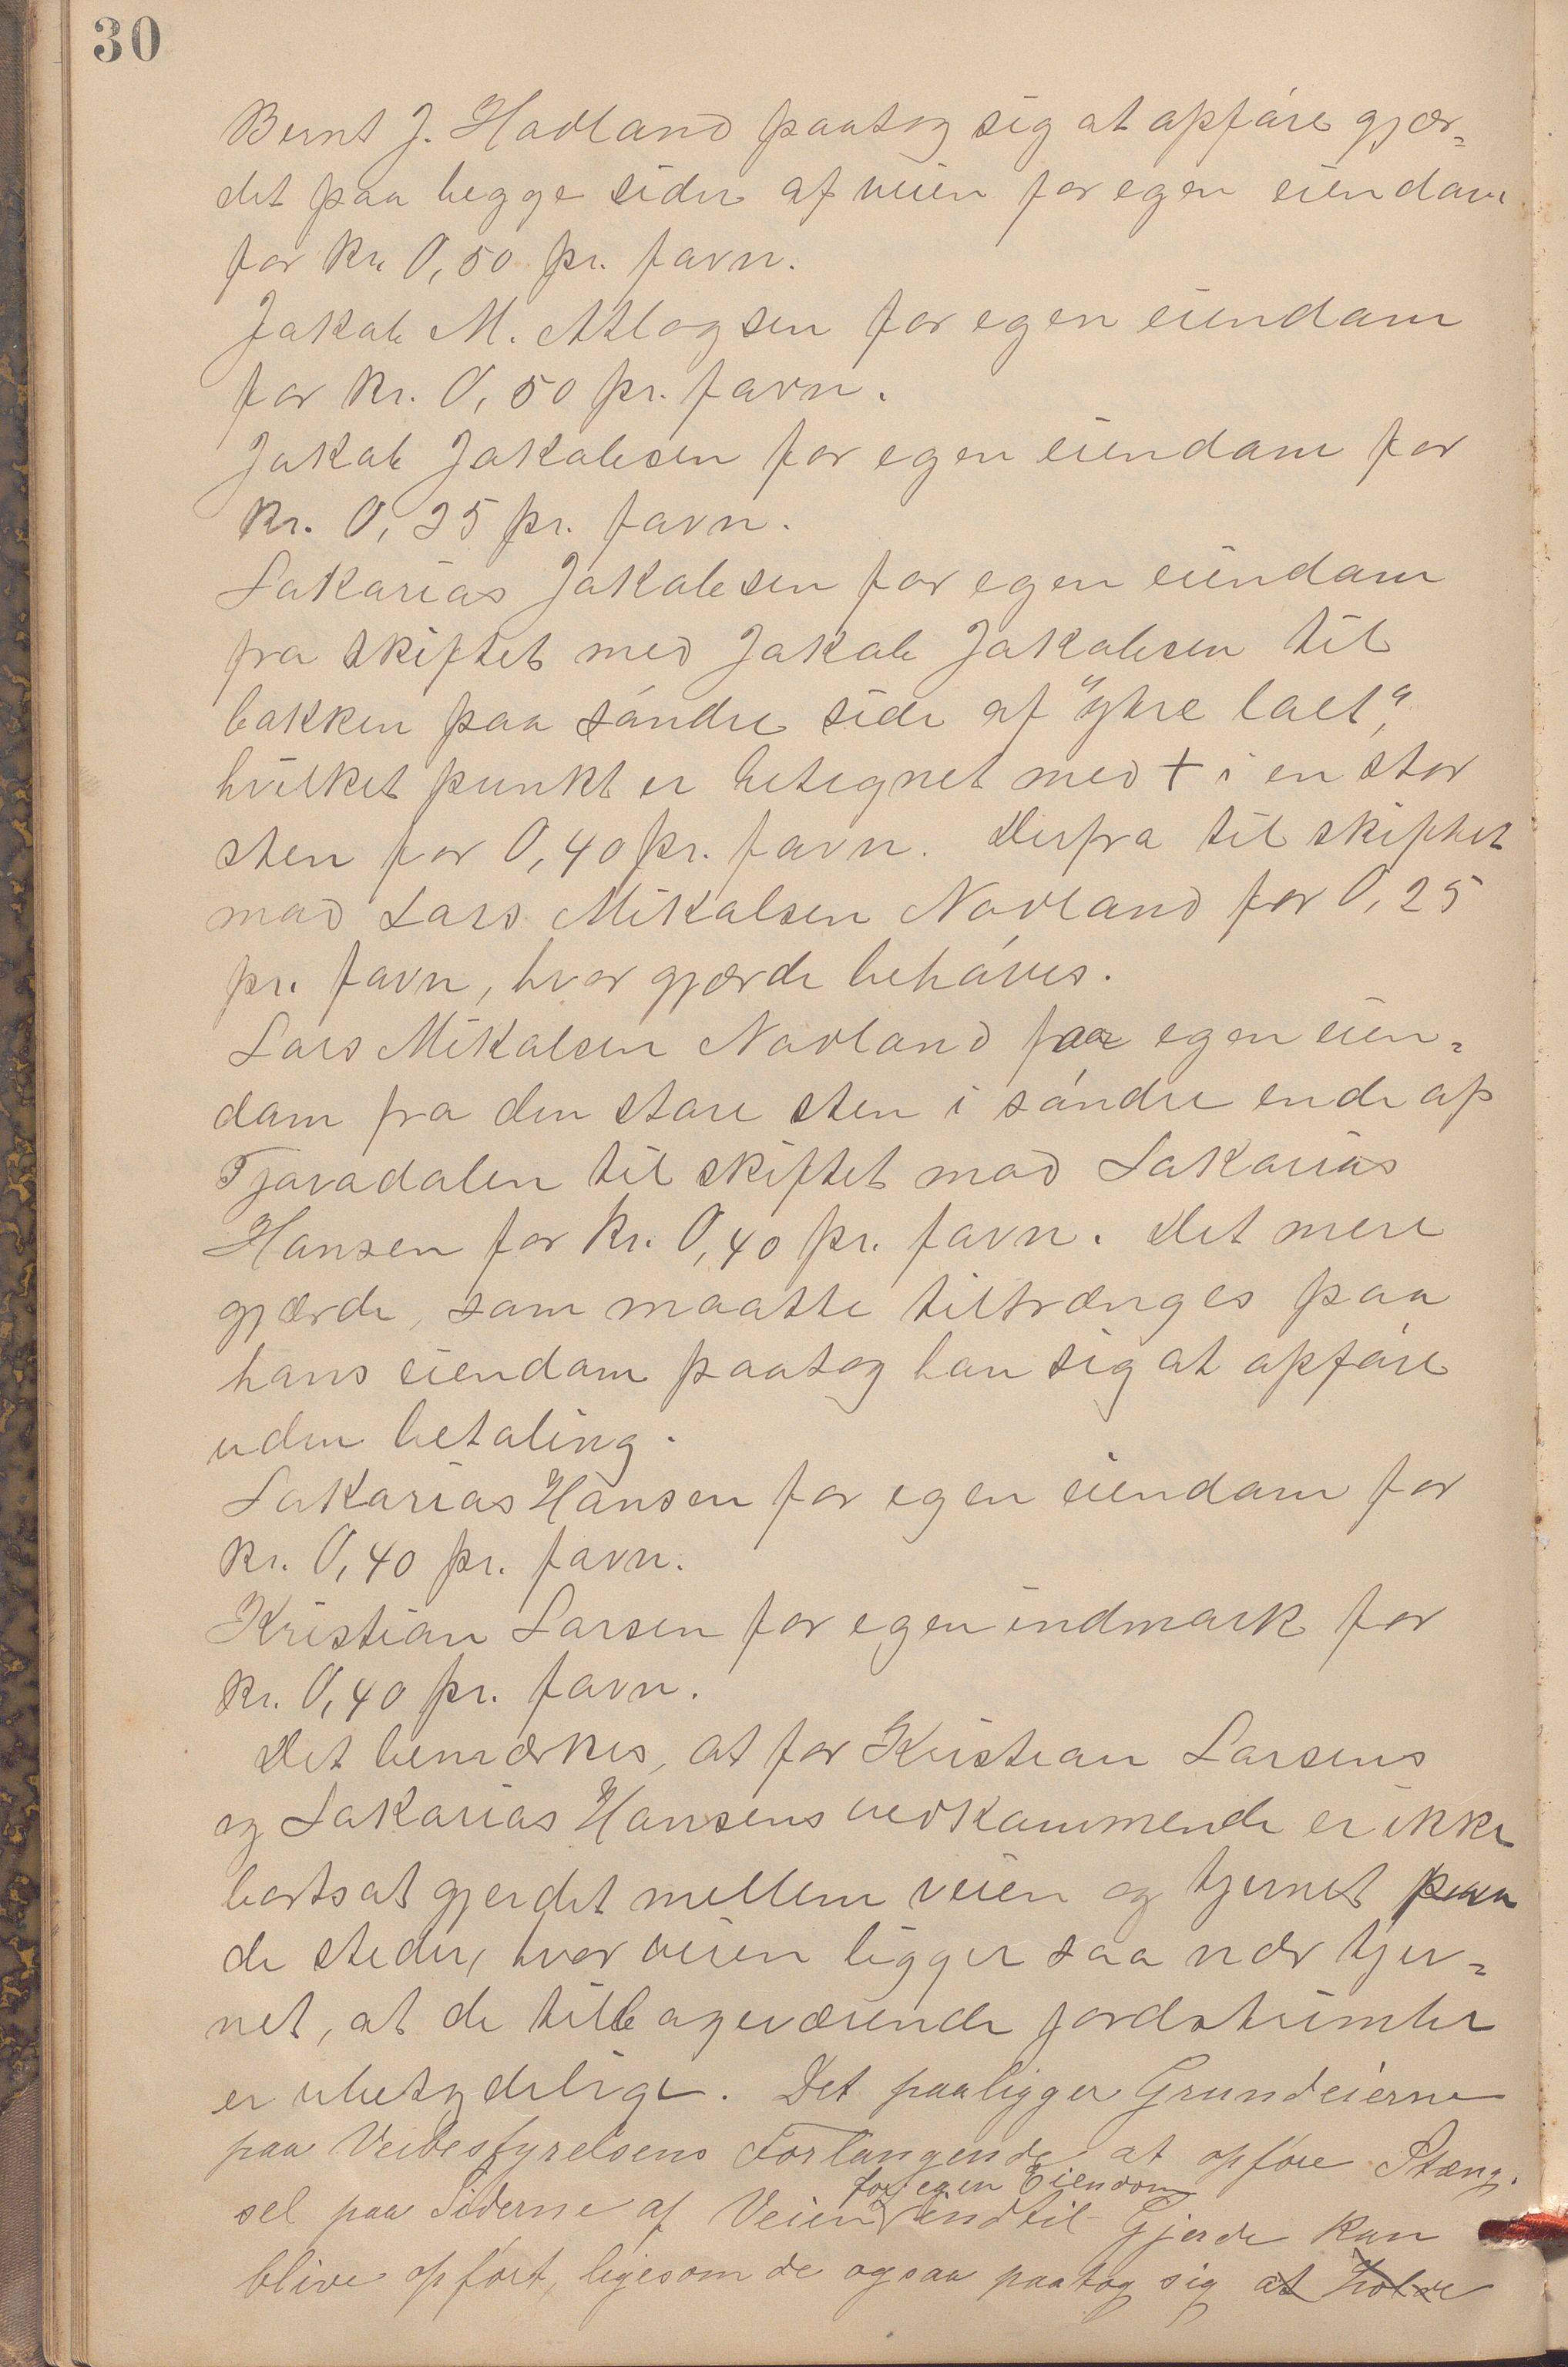 30
Bernt J. Hovland paatog sig at opføre gjær-
det paa begge sider af veien for egen eiendom
for kr. 0,50 pr. favn.
Jakob M. Atlogsen for egen eiendom
for kr. 0,50 pr. favn.
Jakob Jakobsen for egen eiendom for
kr. 0,25 pr. favn.
Sakarias Jakobsen for egen eiendom
fra skiftet med Jakob Jakobsen til
bakken paa søndre side af "ytre laet",
hvilket punkt er betegnet med + i en stor
sten for 0,40 pr. favn. Derfra til skiftet
mod Lars Mikalsen Novland for 0,25
pr. favn, hvor gjærde behøves.
Lars Mikalsen Novland paa egen eien-
dom fra den store sten i søndre ende af
Tjøvadalen til skiftet mod Sakarias
Hansen for kr. 0,40 pr. favn. Det mere
gjærde, som maatte tiltrænges paa
hans eiendom paatog han sig at opføre
uden betaling.
Sakarias Hansen for egen eiendom for
kr. 0,40 pr. favn.
Kristian Larsen for egen indmark for
kr. 0,40 pr. favn.
Det bemærkes, at for Kristian Larsens
og Sakarias Hansens vedkommende er ikke
bortsat gjerdet mellem veien og tjernet paa
de steder, hvor veien ligger saa nær tjer-
net, at de tilbageværende jordstrimler
er ubetydelige. Det paaligger Grundeierne
paa Veibestyrelsens Forlangende at opføre Stæng-
for egen Eiendom
sel paa Siderne af Veien indtil Gjerde kan
blive opført, ligesom de ogsaa paatog sig at holde